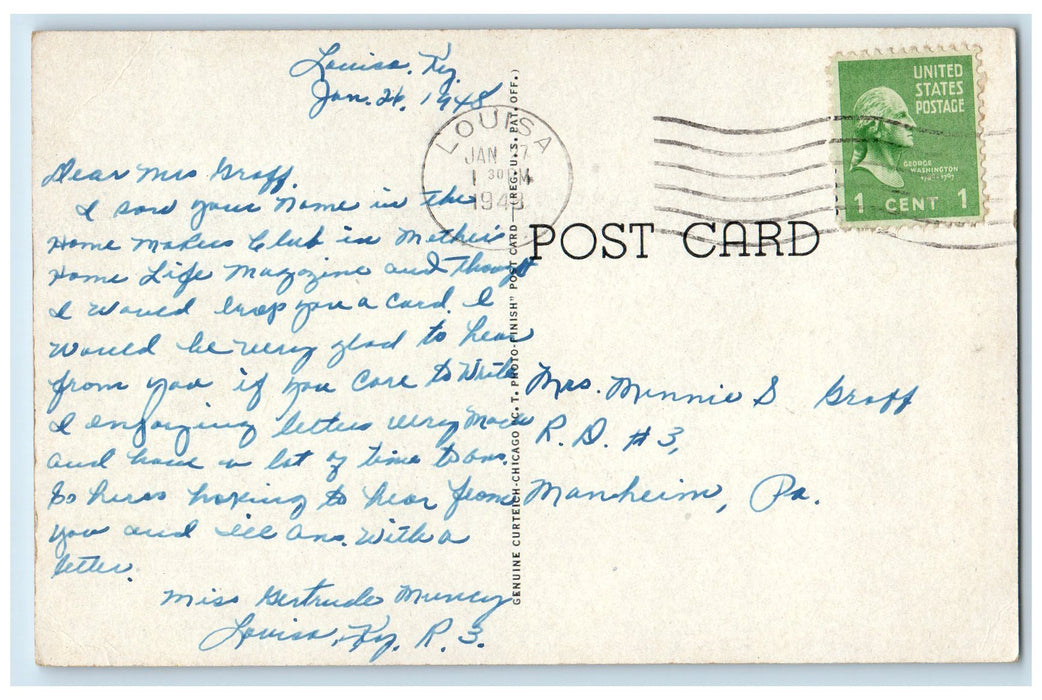 Louisa, Ky.
Jan. 26, 1948
Dear Mrs Graff.
I saw your name in the
Home Makers Club in Mother's
Home Life Magazine and thought
I would drop you a card. I
would be very glad to hear
from you if you care to write
I enjoizing letters very much
and have a lot of time to ans.
So heres hoping to hear from
you and ill ans. with a
letter.
Miss Gertrude Muncy
Louisa, Ky. R. 3.
GENUINE CURTEICH-CHICAGO "C. T. PHOTO-FINISH" POST CARD—(REG. U. S. PAT. OFF.)
LOUISA
JAN 7
1 30 M
1948
UNITED
STATES
POSTAGE
GEORGE
WASHINGTON
1 CENT 1
POST CARD
Mrs. Minnie S Graff
R. D. #3,
Manheim, Pa.